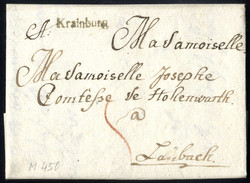 Krainburg
A: Madamoiselle
Madamoiselle Josephe
Comtesse de Hohenwarth
a
Laibach
M 450